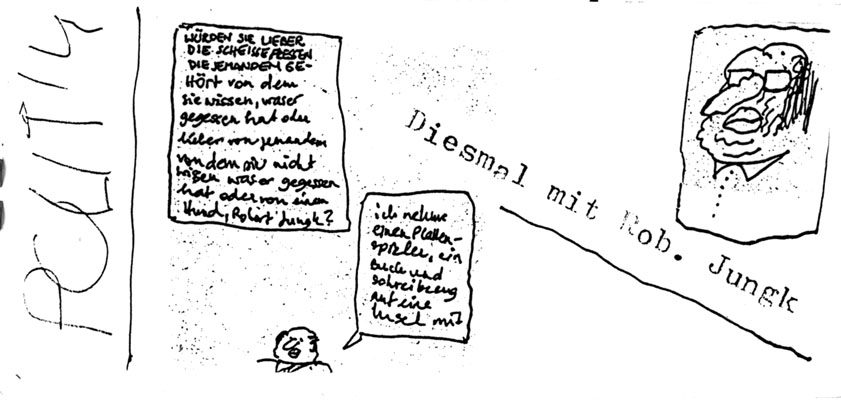 POLITIK
WÜRDEN SIE LIEBER
DIE SCHEISSE FRESSEN
DIE JEMANDEM GE-
Hört von dem
sie wissen, was er
gegessen hat oder
lieber von jemandem
von dem sie nicht
wissen was er gegessen
hat oder von einem
Hund, Robert Jungk?
ich nehme
einen Platten-
spieler, ein
Buch und
Schreibzeug
auf eine
Insel mit
Diesmal mit Rob. Jungk